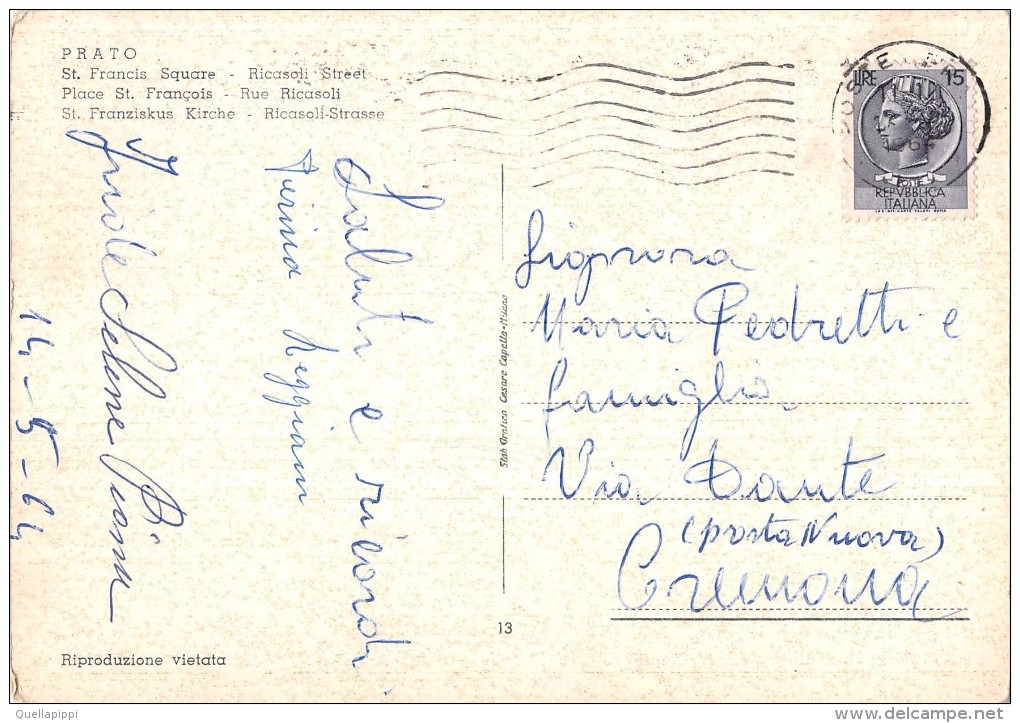 PRATO
St. Francis Square - Ricasoli Street
Place St. François - Rue Ricasoli
St. Franziskus Kirche - Ricasoli-Strasse
LIRE 15
REPVBBLICA
ITALIANA
Saluti e ricordi
Reggiani
Selene
14-5-64
Signora
Maria Pedretti e
famiglia
Via Dante
(porta Nuova)
Cremona
Cesare Capello-Milano
13
Riproduzione vietata
Quellapippi
delcampe.net